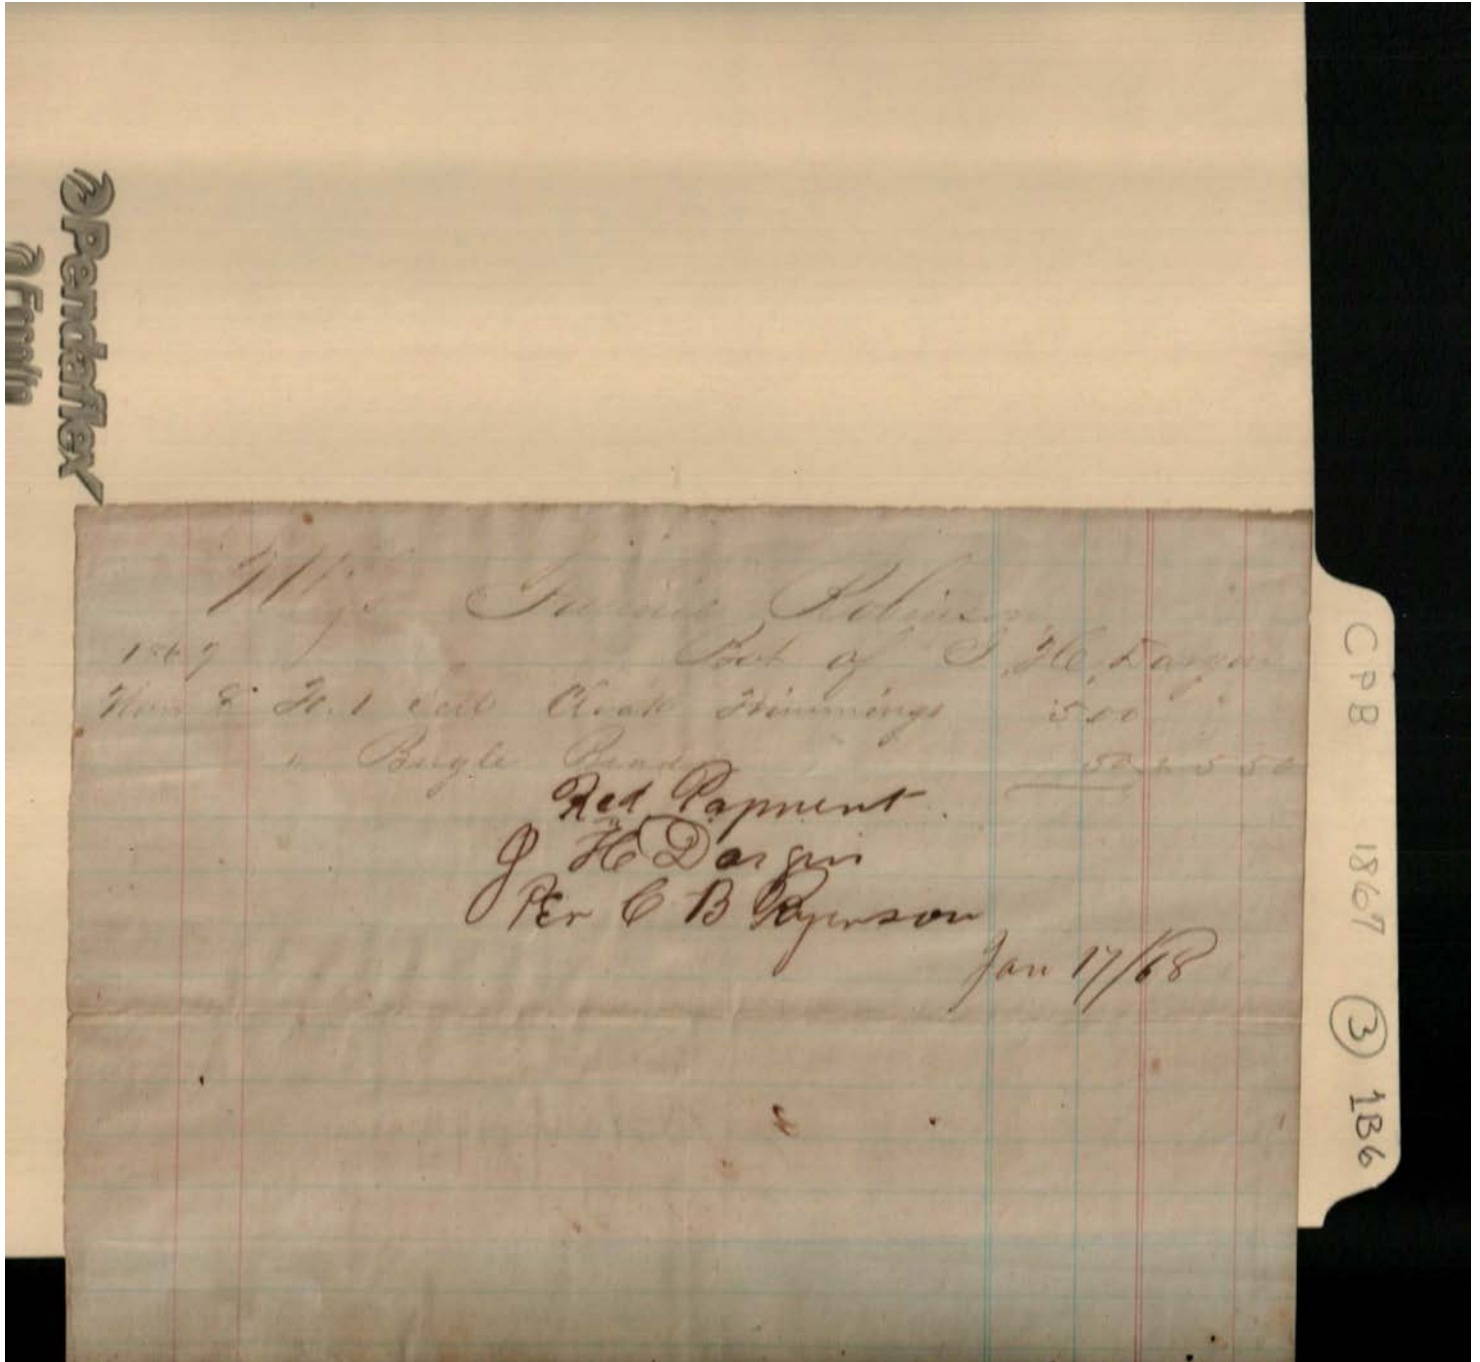 Pendaflex
Miss Fannie Robinson
1867 Bot of J. H. Dargin
8 Cloak Trimmings 5 00
" Bugle Beads 50 $ 5 50
Recd Payment.
J H Dargin
Per C B Ryerson
Jan 17/68
CPB 1867 3 1B6